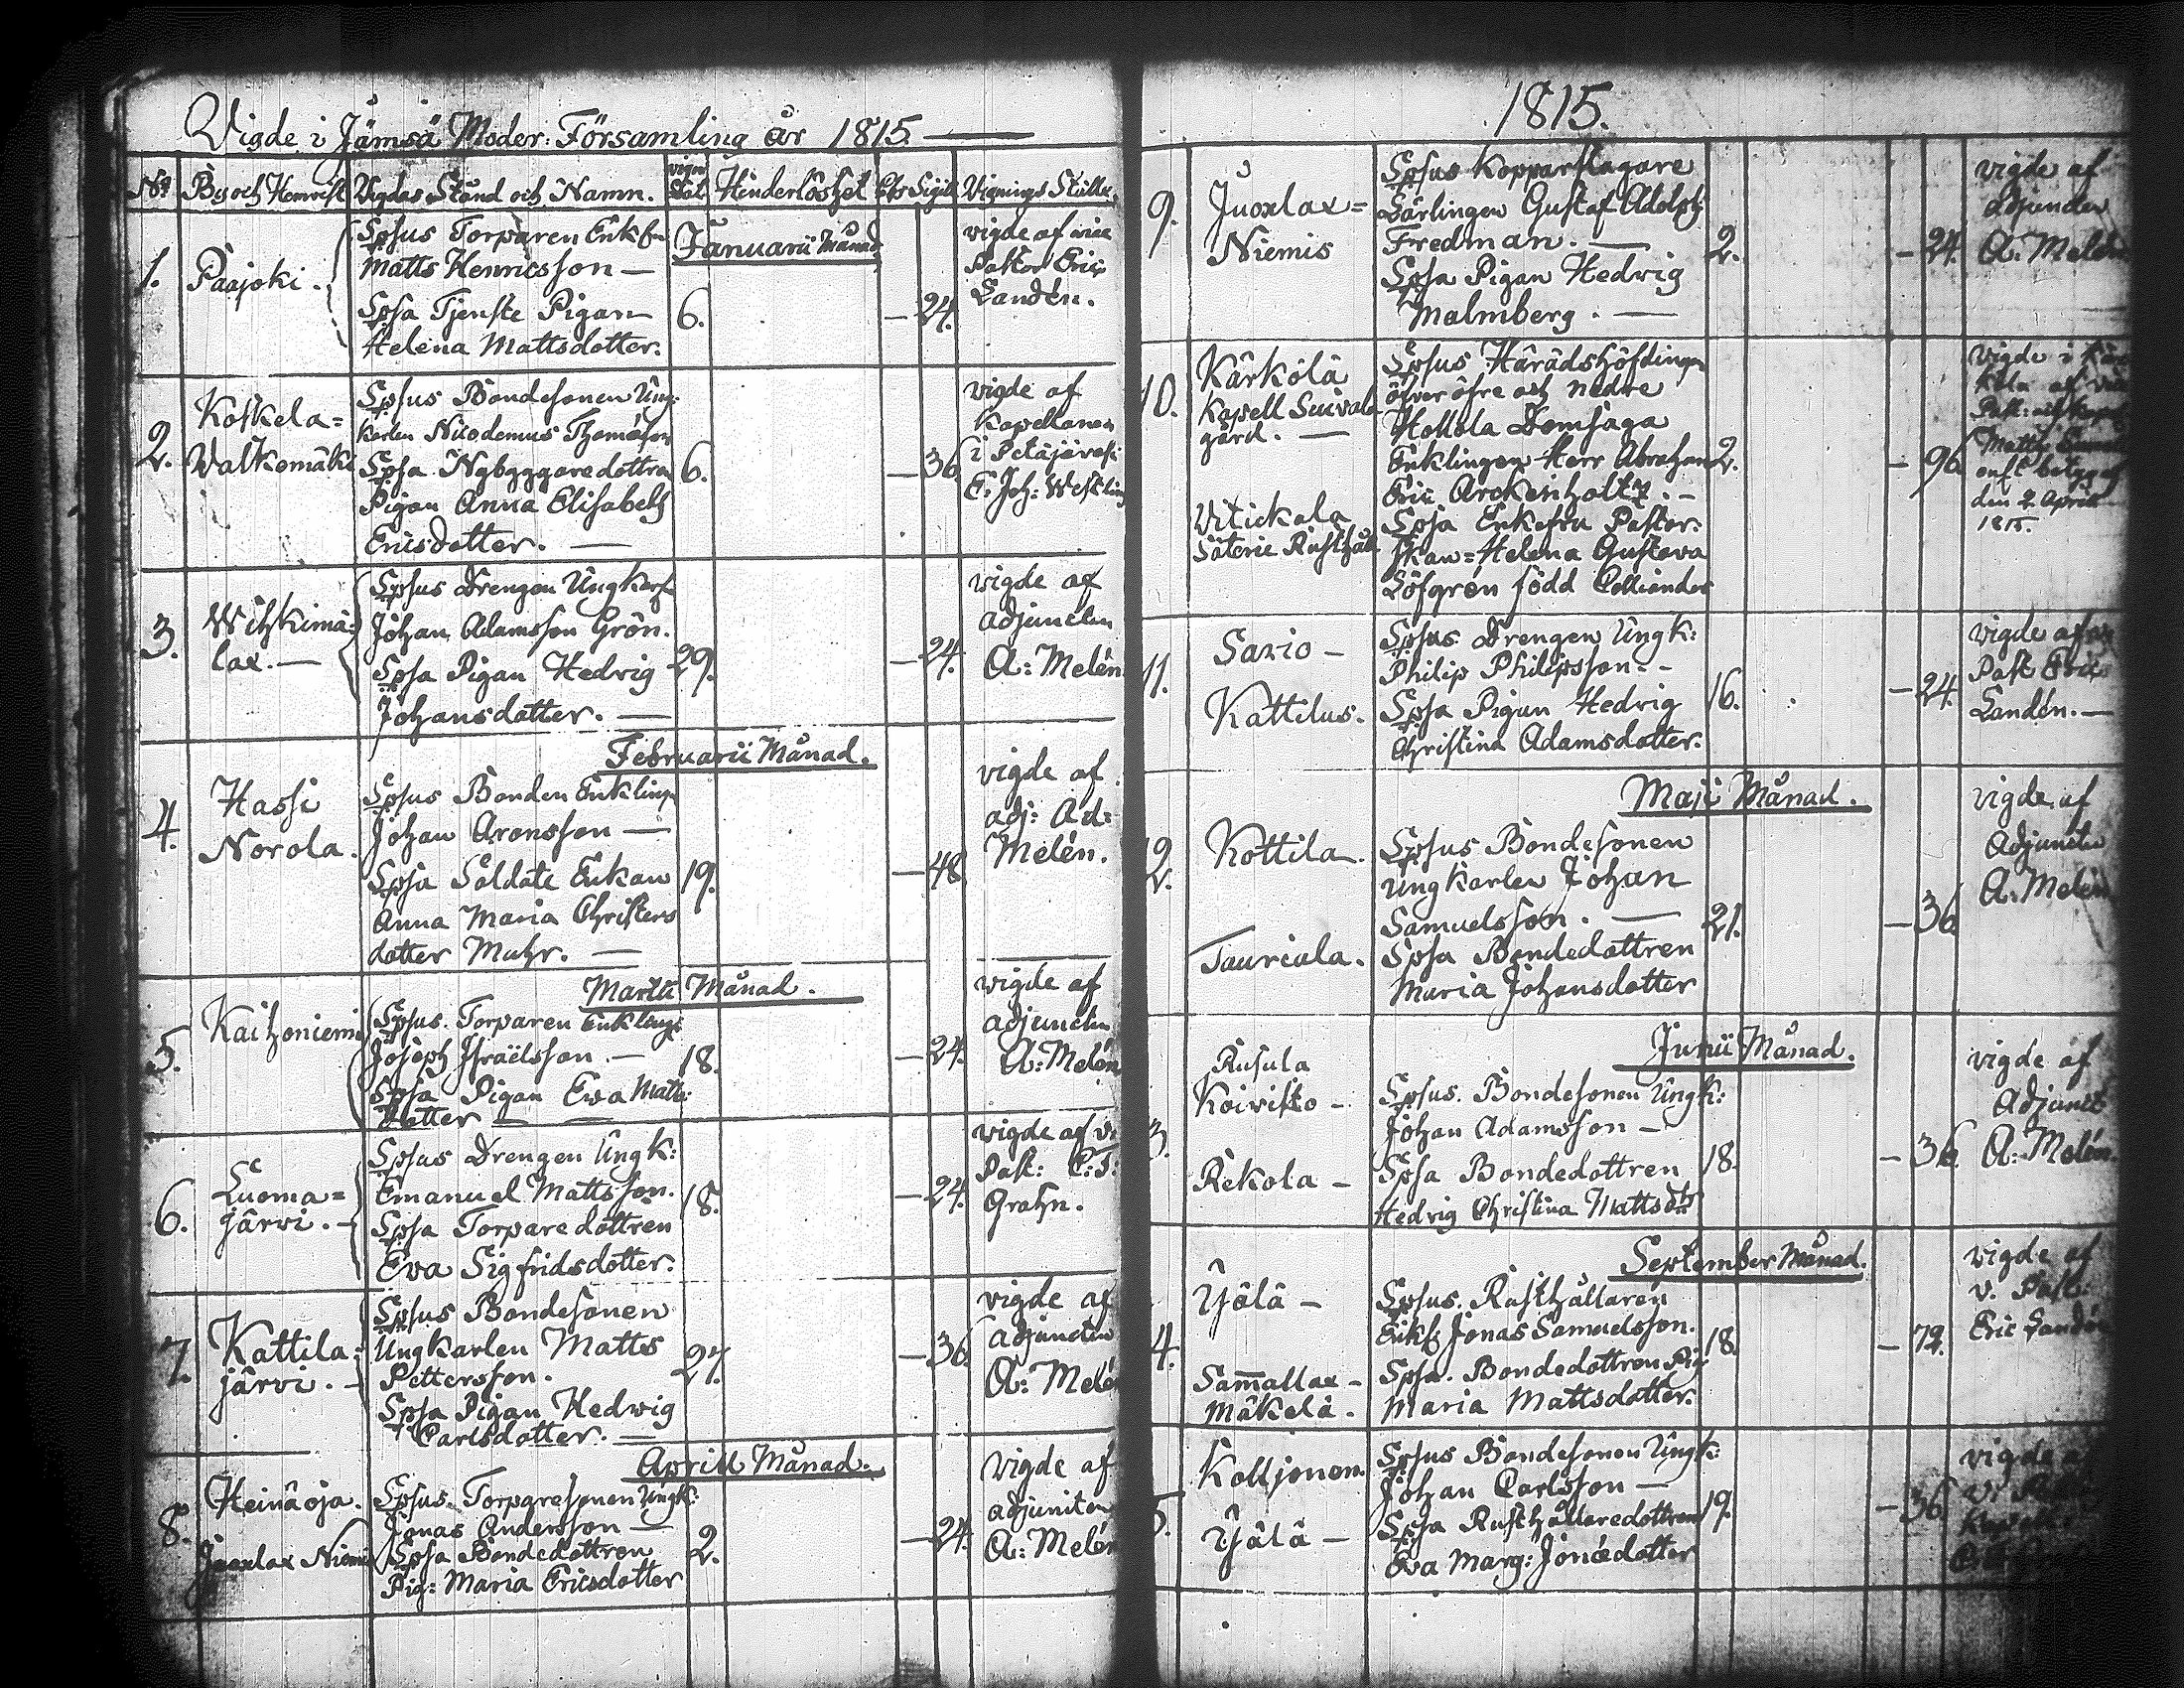 Vigde i Jämsä Moder: Församling år 1815.
No By och Hemvist Vigdas Stånd och Namn. Hinderlöshet Vignings Ställe
Januarii Månad
1. Paajoki.
Spsus Torparen Enkl:
Matts Henricsson —
Spsa Tjenste Pigan
Helena Mattsdotter.
6.
— 24.
vigde af vice
Pastor Eric
Landén.
2. Koskela=
Walkemäki
Spsus Bondesonen Ung:
karlen Nicodemus Thomasson
Spsa Nybyggaredottren
Pigan Anna Elisabeth
Ericsdotter. —
6.
— 36.
vigde af
Kapellanen
i Petäjävesi
E: Joh: Westling
3. Wihkimä=
lax. —
Spsus Drengen Ungkarl
Johan Adamsson Grön.
Spsa Pigan Hedvig
Johansdotter. —
29.
— 24.
vigde af
adjuncten
A: Melén
Februarii Månad.
4. Hassi
Norola.
Spsus Bonden Enklingen
Johan Aronsson —
Spsa Soldate Enkan
Anna Maria Christers
dotter Muhr. —
19.
— 48
vigde af
adj: Ad:
Melén.
Martii Månad.
5. Kaihoniemi
Spsus. Torparen Enkling:
Joseph Israëlsson. —
Spsa Pigan Eva Matts:
dotter —
18.
— 24.
vigde af
adjuncten
A: Melén
6. Luoma=
järvi. —
Spsus Drengen Ungk:
Emanuel Mattsson.
Spsa Torparedottren
Eva Sigfridsdotter.
18.
— 24.
vigde af v:
Past: C: J:
Grahn.
7. Kattila=
järvi. —
Spsus Bondesonen
Ungkarlen Matts
Pettersson.
Spsa Pigan Hedwig
Carlsdotter. —
27.
— 36.
vigde af
adjuncten
A: Melén
Aprill Månad.
8. Heinäoja.
Juoxlax Niemi
Spsus. Torparesonen Ungk:
Jonas Andersson —
Spsa Bondedottren
Pig: Maria Ericsdotter
2.
— 24.
vigde af
adjuncten
A: Melén
1815.
9. Juoxlax=
Niemis
Spsus Kopparslagare
Lärlingen Gustaf Adolph
Fredman. —
Spsa Pigan Hedvig
Malmberg. —
2.
— 24.
vigde af
Adjuncten
A: Melén
10. Kärkölä
Kapell
gård. —
Säterie Rusthåll
Spsus Häradshöfdingen
öfver öfre och nedre
Hollola Domsaga
Enklingen Herr Abraham
Eric Arckenholtz. —
Spsa Enkefru Pastor:
skan= Helena Gustava
Löfgrén född Colliander
2.
— 96.
vigde i Kär
köla af
Past: och
Matts
enl: betyg af
den 2 April
1815.
11. Savio —
Kattilus.
Spsus. Drengen Ungk:
Philip Philipsson. —
Spsa Pigan Hedvig
Christina Adamsdotter.
16.
— 24.
vigde af
Past Eric
Landén. —
Maji Månad.
12. Kottila.
Tauriala.
Spsus Bondesonen
Ungkarlen Johan
Samuelsson. —
Spsa Bondedottren
Maria Johansdotter
21.
— 36.
vigde af
Adjuncten
A: Melén
Junii Månad.
3. Rusula
Koivisto —
Rekola —
Spsus. Bondesonen Ungk:
Johan Adamsson —
Spsa Bondedottren
Hedvig Christina Mattsdtr
18.
— 36.
vigde af
Adjunct
A: Melén.
September Månad.
4. Yjälä —
Sam̄allax —
Mäkelä.
Spsus. Rusthållaren
Enkl: Jonas Samuelsson.
Spsa. Bondedottren Pig
Maria Mattsdotter.
18.
— 72.
vigde af
v. Past:
Eric Landén
5. Kolljonen.
Yjälä —
Spsus Bondesonen Ungk:
Johan Carlsson —
Spsa Rusthållaredottren
Eva Marg: Jonædotter
19.
— 36
vigde